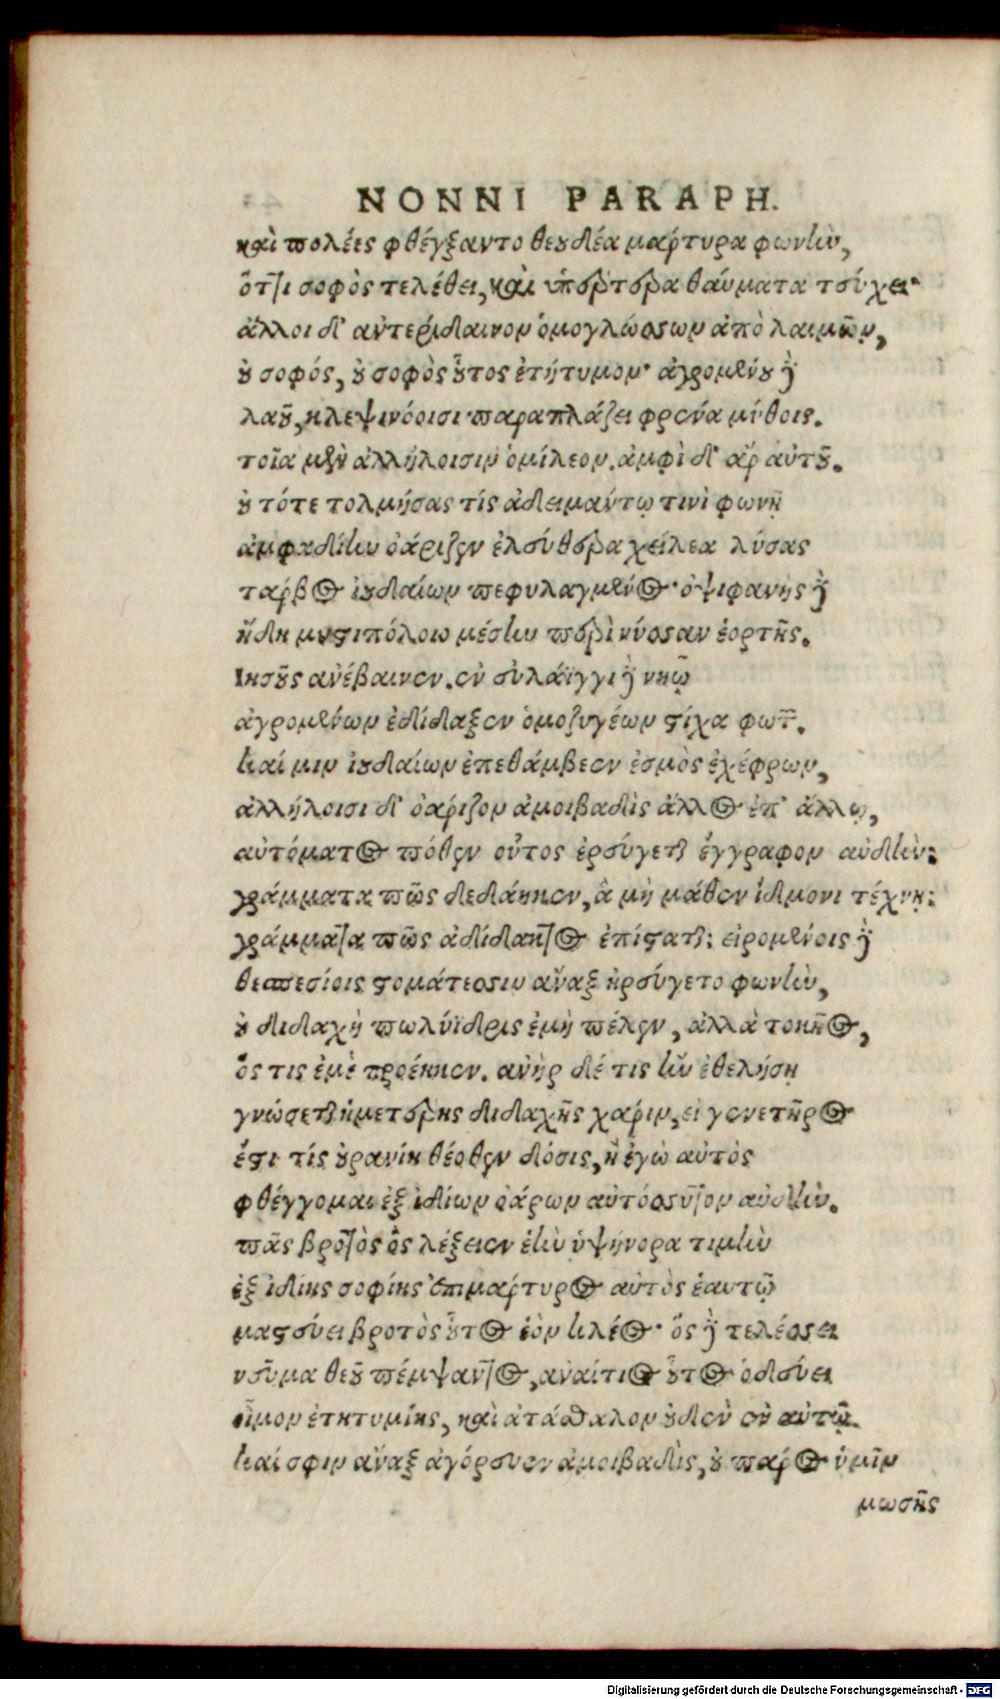 NONNI PARAPH.
καὶ πολέες φθέγξαντο θεουδέα μάρτυρα φωνὴν,
ὅττι σοφὸς τελέθει, καὶ ὑπέρτερα θαύματα τεύχει·
ἄλλοι δ' ἀντερίδαινον ὁμογλώσσων ἀπὸ λαιμῶν,
οὐ σοφός, οὐ σοφὸς οὗτος ἐτήτυμον· ἀγρομένου δὲ
λαοῦ, κλεψινόοισι παραπλάζει φρένα μύθοις.
τοῖα μὲν ἀλλήλοισιν ὁμίλεον. ἀμφὶ δ' ἄρ αὐτοῦ.
οὐ τότε τολμήσας τίς ἀδειμάντῳ τινὶ φωνῇ
ἀμφαδίην ὀάριζεν ἐλεύθερα χείλεα λύσας
τάρβος ἰουδαίων πεφυλαγμένος· ὀψιφανὴς δὲ
ἤδη μυστιπόλοιο μέσην περὶ νύσσαν ἑορτῆς.
Ιησοῦς ἀνέβαινεν. ἐν εὐλάϊγγι δὲ νηῷ
ἀγρομένων ἐδίδαξεν ὁμοζυγέων στίχα φωτῶν.
καί μιν ἰουδαίων ἐπεθάμβεεν ἑσμὸς ἐχέφρων,
ἀλλήλοισι δ' ὀάριζον ἀμοιβαδὶς ἄλλος ἐπ' ἄλλῳ,
αὐτόματος πόθεν οὗτος ἐρεύγεται ἔγγραφον αὐδήν;
γράμματα πῶς δεδάηκεν, ἃ μὴ μάθεν ἴδμονι τέχνῃ;
γράμματα πῶς ἀδίδακτος ἐπίσταται; εἰρομένοις δὲ
θεσπεσίοις στομάτεσσιν ἄναξ ἠρεύγετο φωνὴν,
οὐ διδαχὴ πωλύϊδρις ἐμὴ πέλεν, ἀλλὰ τοκῆος,
ὅς τις ἐμὲ προέηκεν. ἀνὴρ δέ τις ἢν ἐθελήσῃ
γνώσεται ἡμετέρης διδαχῆς χάριν, εἰ γενετῆρος
ἔστι τίς οὐρανίη θέοθεν δόσις, ἢ ἐγὼ αὐτὸς
φθέγγομαι ἐξ ἰδίων ὀάρων αὐτόσσυτον αὐδήν.
πᾶς βροτὸς ὃς λέξειεν ἑὴν ὑψήνορα τιμὴν
ἐξ ἰδίης σοφίης ἐπιμάρτυρος αὐτὸς ἑαυτῷ
μαστεύει βροτὸς οὗτος ἑὸν κλέος· ὃς δὲ τελέσσει
νεῦμα θεοῦ πέμψαντος, ἀναίτιος οὗτος ὁδεύει
οἶμον ἐτητυμίης, καὶ ἀτάσθαλον οὐδὲν ἐν αὐτῷ.
καί σφιν ἄναξ ἀγόρευεν ἀμοιβαδὶς, οὐ πάρος ὑμῖν
μωσῆς
Digitalisierung gefördert durch die Deutsche Forschungsgemeinschaft - DFG